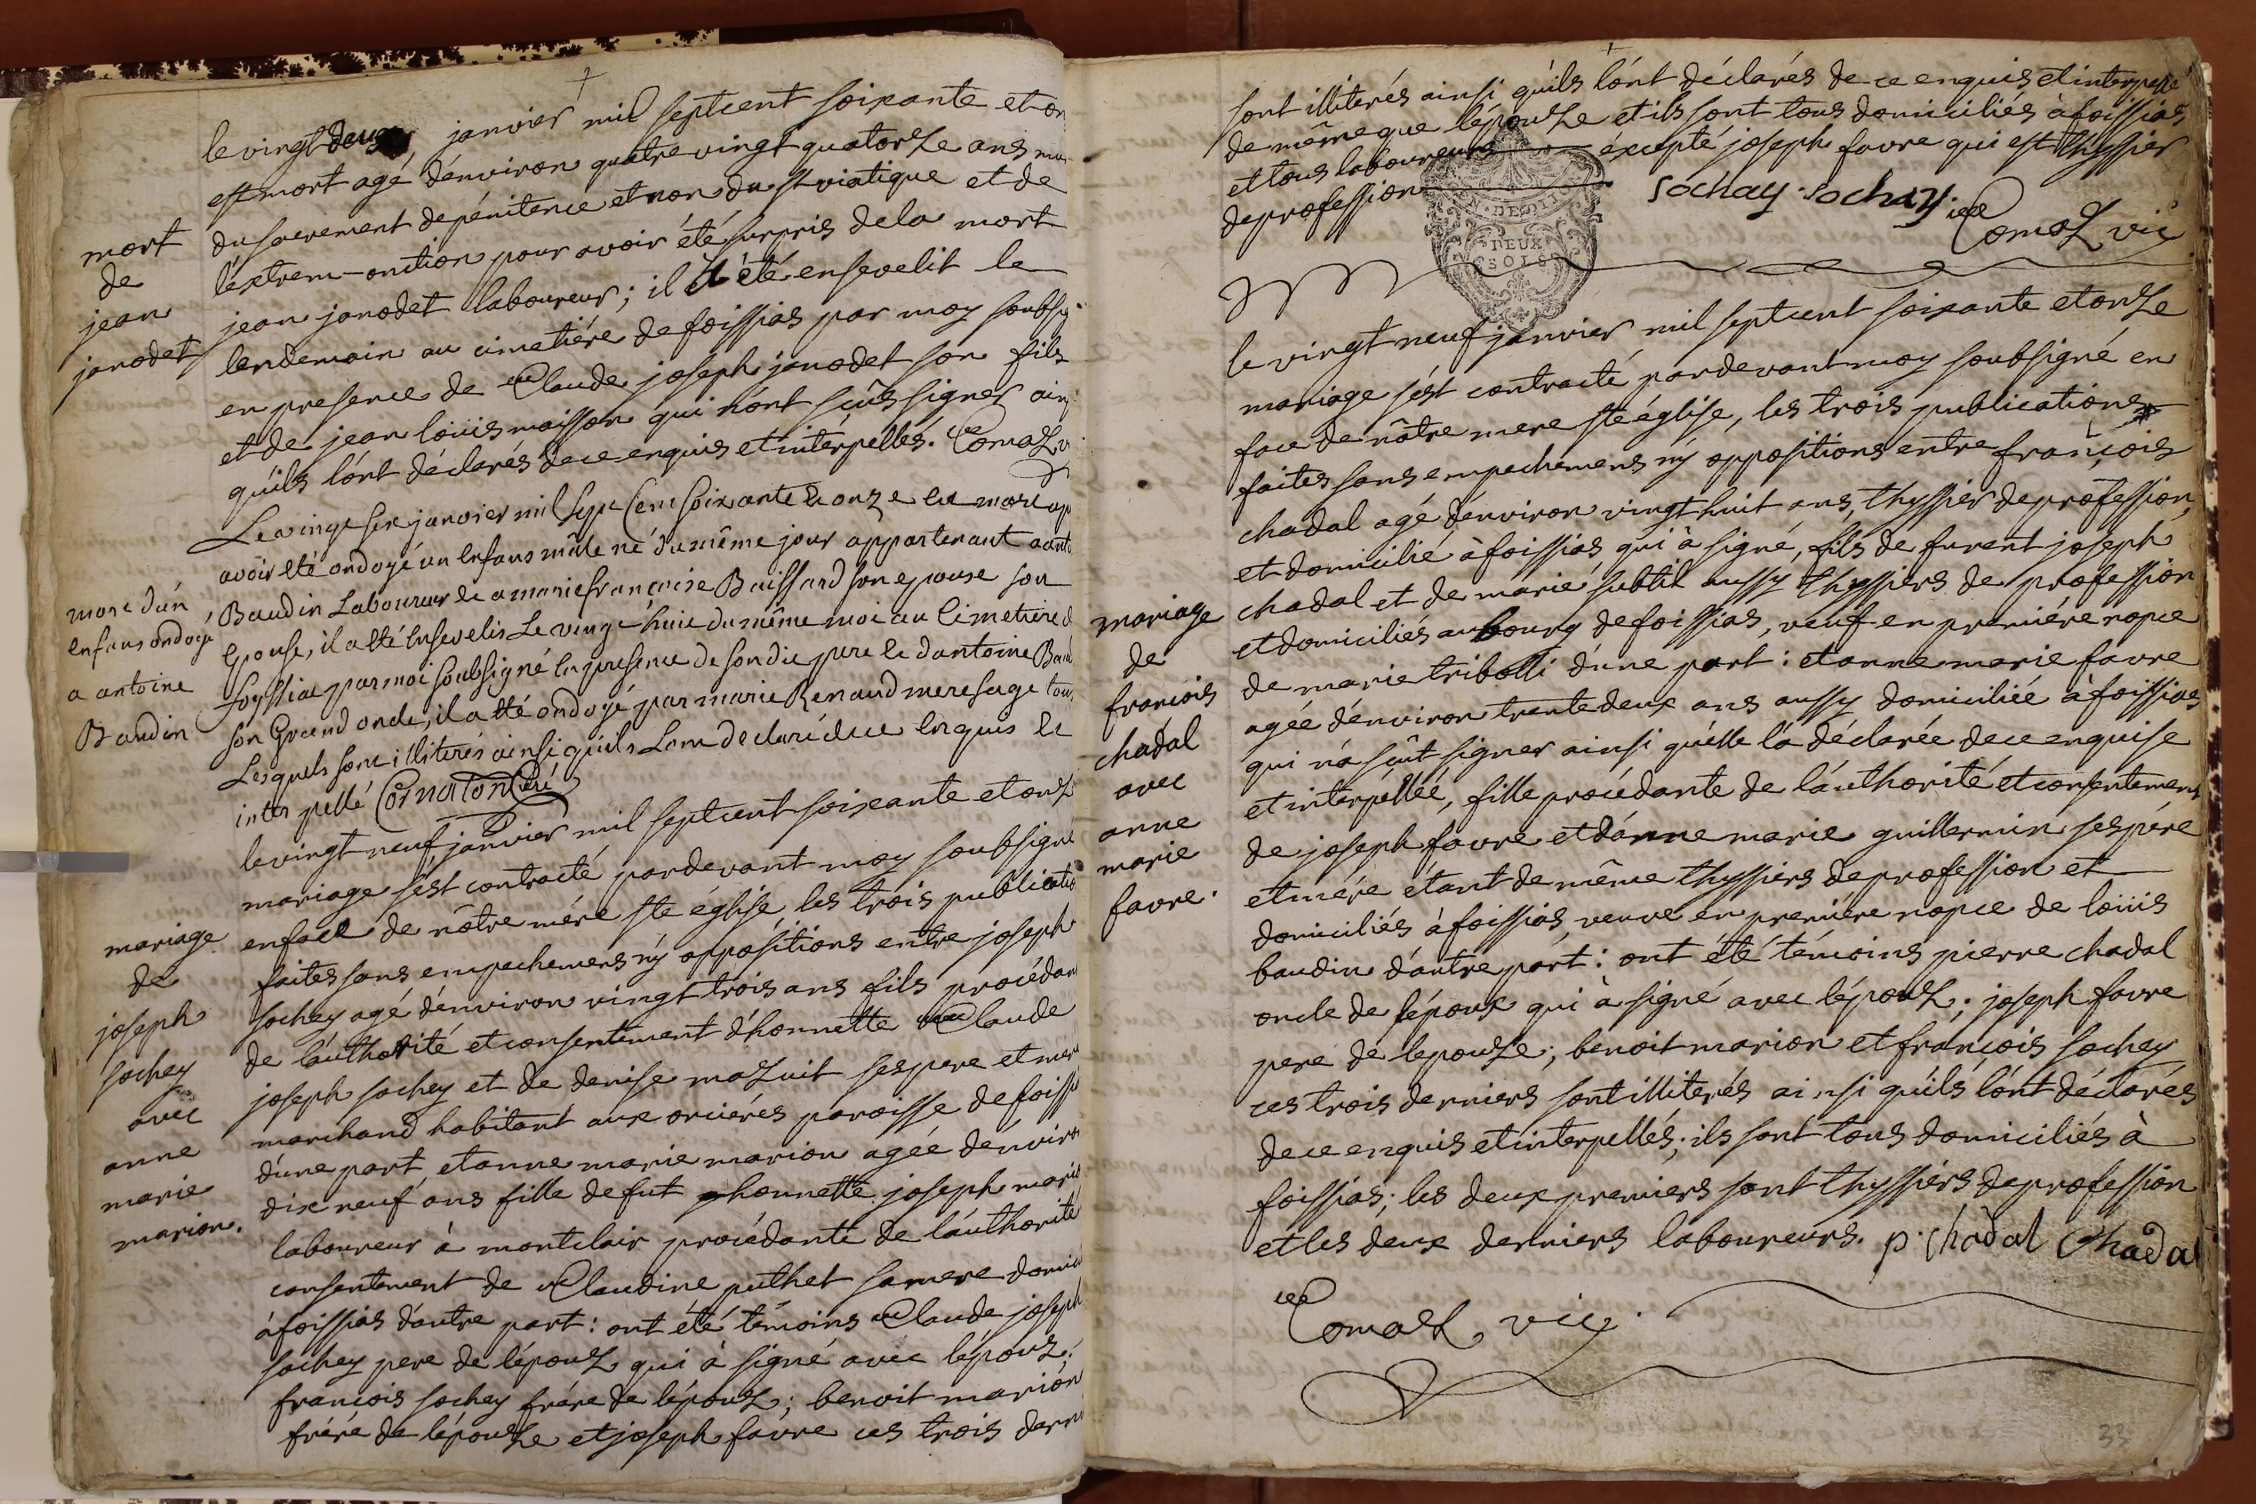 le vingt deux janvier mil septcent soixante et on
est mort agé dénviron quatre vingt quatorze ans mu
du sacrement de pénitence et non du st viatique et de
léxtrem-onction pour avoir été surpris de la mort
jean janodet laboureur; il a été ensevelit le
lendemain au cimetiére de foissias par moy soubsig
en presence de Claude joseph janodet son fils
et de jean loüis maisson qui nónt sçûs signer ainsi
quíls lónt déclarés de ce enquis et intérpellés. Comaz v
mort
de
jean
janodet
Le vingt six janvier mil Sept Cent Soixante et onze est mort ap
avoir eté ondoyé un enfans mâle né du même jour appartenant a anto
Baudin Laboureur et a marie françoise Buissard son epouse son
Epouse, il a eté Ensevelis Le vingt-huit du même moi au Cimetiere d
foyssiat par moi soubsigné En presence de son dit pere et dantoine Bau
son Grand oncle, il a eté ondoyé par marie Renaud mere sage tous
Lesquels sont illiterés ainsi quils Lont declaré de ce Enquis et
inter pellé Cornaton Curé
mort dún
enfans ondoyé
a antoine
Baudin
le vingt neuf janvier mil septcent soixante et onz
mariage sést contracté pardevant moy soubsigné
en face de nôtre mére ste église, les trois publicatio
faites sans empechemens ny oppositions entre joseph
sochey agé dénviron vingt trois ans fils procédan
de láuthorité et consentement dhonnette Claude
joseph sochey et de denise mazuit ses pere et mere
marchand habitant aux orciérés paroisse de foissi
dúne part, et anne marie marion agée dénviron
dix neuf ans fille de fut honnette joseph mario
laboureur à montclair procédante de láuthorité
consentement de Claudine puthet sa mere domici
à foissias dáutre part: ont été témoins Claude joseph
sochey pere de lépouz qui à signé avec lépouz;
francois sochey frére de lépouz; benoit marion
frére de lépouze et joseph favre ces trois derni
mariage
de
joseph
sochey
avec
anne
marie
marion.
sont illiterés ainsi quíls lónt déclarés de ce enquis et interpellé
de même que lépouze et ils sont tous domiciliés à foissias
et tous laboureurs éxcepté joseph favre qui est thyssier
de profession
Sochay. Sochay. Comaz vic
DEUX
SOLS
le vingt neuf janvier mil septcent soixante et onze
mariage sést contracté pardevant moy soubsigné en
face de nôtre mere ste église, les trois publications
faites sans empechemens ny oppositions entre françois
chadal agé dénviron vingt huit ans, thyssier de profession,
et domicilié à foissias, qui à signé, fils de furent joseph
chadal et de marie subtil aussy thyssiers de profession
et domiciliés au bourg de foissias, veuf en premiére nopce
de marie tribolli dúne part: et anne marie favre
agée dénviron trente deux ans aussy domiciliée à foissias
qui ná sçût signer ainsi quélle lá déclarée de ce enquise
et intérpéllée, fille procédante de láuthorité et consentement
de joseph favre et dánne marie guillermin ses pére
et mére étant de même thyssiers de profession et
domiciliés à foissias, veuve en premiére nopce de loüis
baudin dáutre part: ont été témoins pierre chadal
oncle de lépoux qui à signé avec lépouz; joseph favre
pere de lepouze; benoit marion et françois sochey
ces trois derniers sont illiterés ainsi quíls lónt déclarés
de ce enquis et interpellés; ils sont tous domiciliés à
foissias; les deux premiérs sont thyssiérs de profession
et les deux derniers laboureurs. p. chadal Chadal
Comaz vic.
mariage
de
francois
chadal
avec
anne
marie
favre.
33